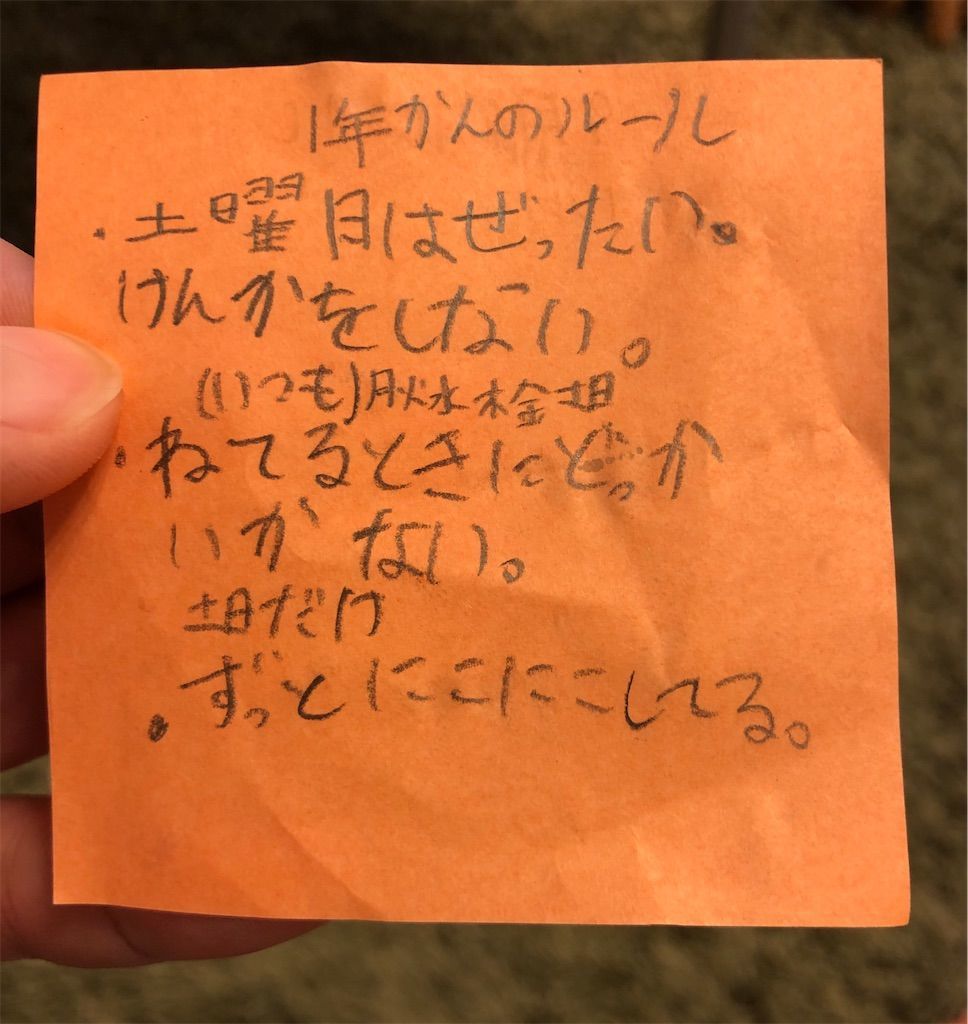 1年かんのルール
・土曜日はぜったい。
けんかをしない。
(いつも)月火水木金土日
・ねてるときにどっか
いかない。
土日だけ
・ずっとにこにこしてる。